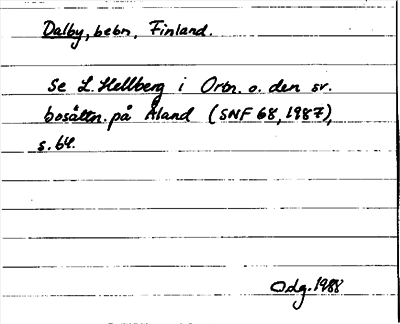 Dalby, bebn, Finland.
Se L. Hellberg i Ortn. o. den sv.
bosättn. på Åland (SNF 68, 1987),
s. 64.
Odg. 1988